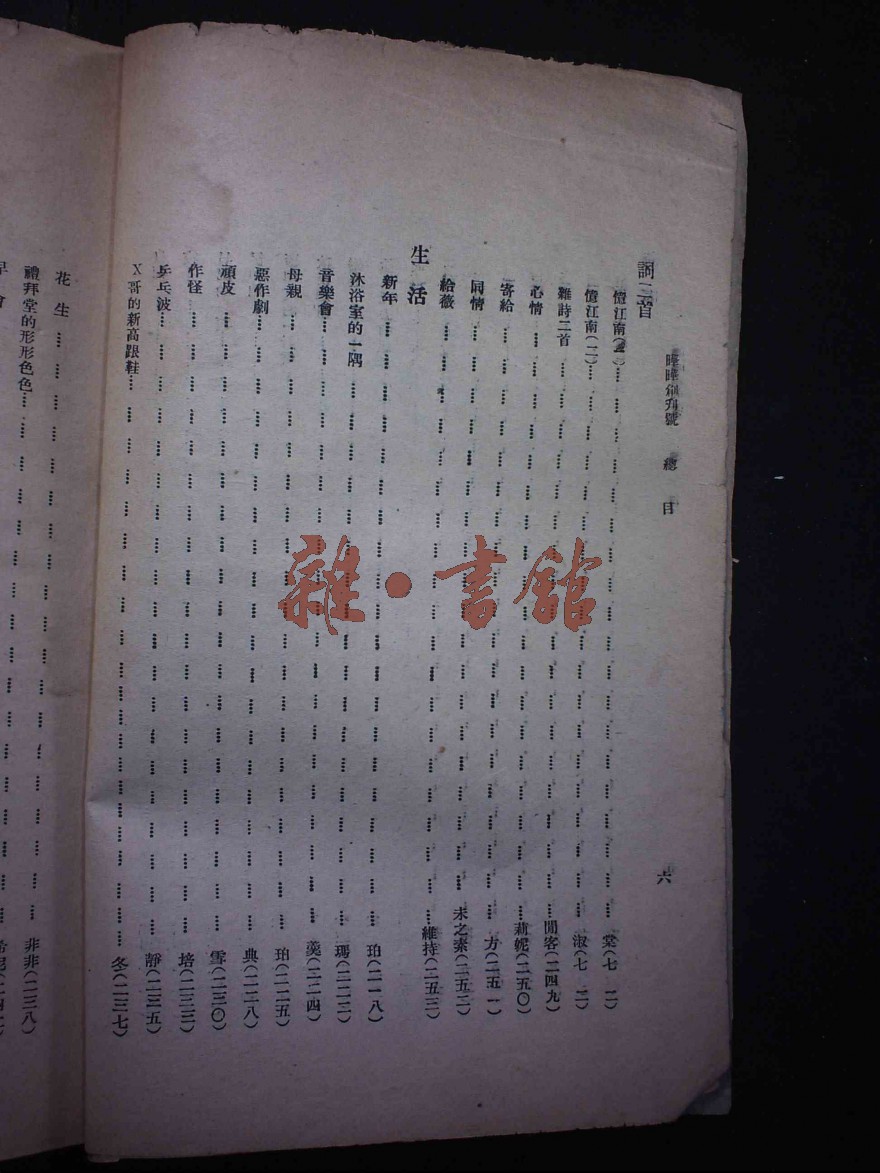 創刊號 總目 六
詞三首
憶江南 棠(七二)
憶江南(二) 淑(七二)
雜詩二首 閒客(二四九)
心情 莉妮(二五〇)
寄給 方(二五一)
同情 未之素(二五二)
給薇 維持(二五三)
生活
新年 珀(二一八)
沐浴室的一隅 瑪(二二二)
音樂會 羮(二二四)
母親 珀(二二五)
惡作劇 典(二二八)
頑皮 雪(二三〇)
作怪 培(二三三)
乒乓波 靜(二三五)
X哥的新高跟鞋 冬(二三七)
花生
禮拜堂的形形色色 非非(二三八)
雜·書舘